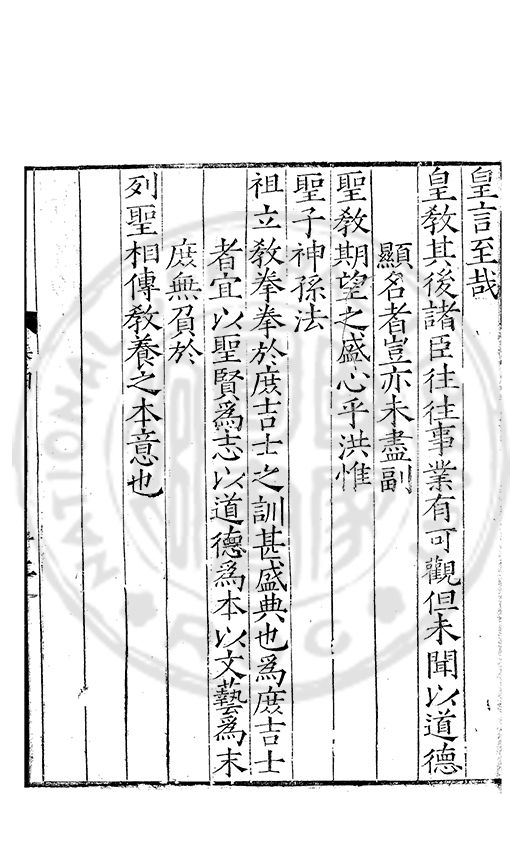 皇言至哉
皇教其後諸臣往往事業有可觀但未聞以道德
顯名者豈亦未盡副
聖教期望之盛心乎洪惟
聖子神孫法
祖立教拳拳於庶吉士之訓甚盛典也為庶吉士
者宜以聖賢為志以道德為本以文藝為末
庶無負於
列聖相傳教養之本意也